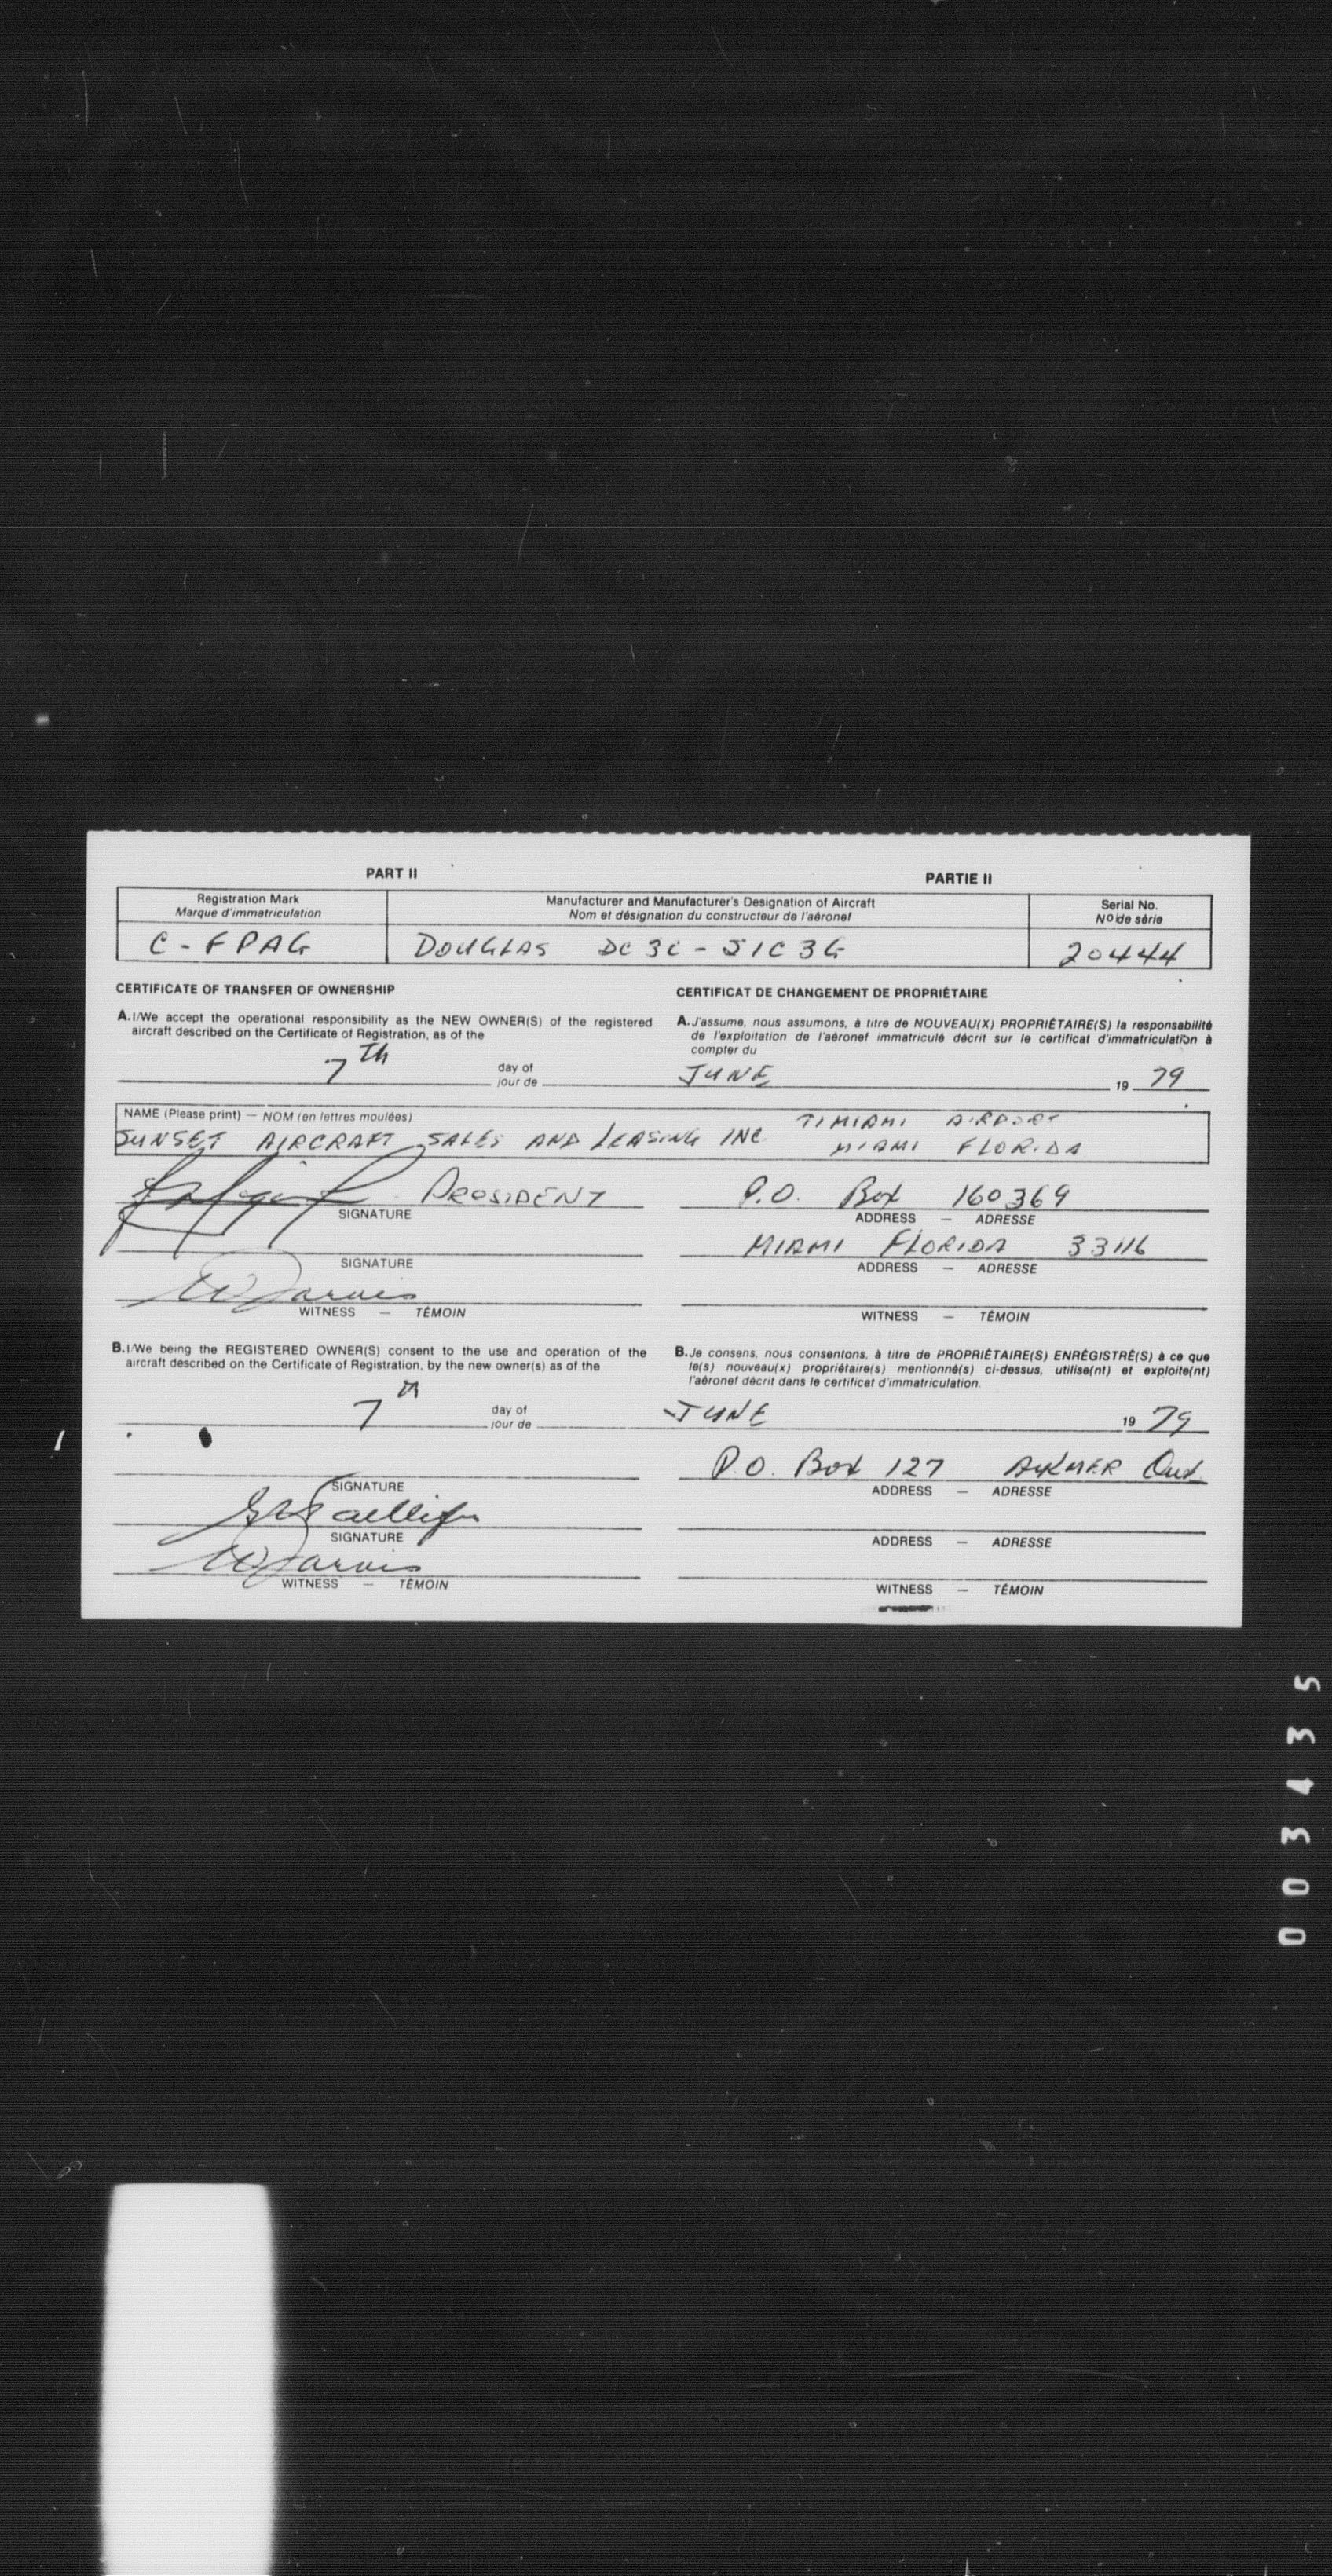 PART II PARTIE II
Registration Mark Manufacturer and Manufacturer's Designation of Aircraft Serial No.
Marque d'immatriculation Nom et désignation du constructeur de l'aéronef Nº de série
C-FPAG DOUGLAS DC 3C - S1C 3G 20444
CERTIFICATE OF TRANSFER OF OWNERSHIP
A. I/We accept the operational responsibility as the NEW OWNER(S) of the registered
aircraft described on the Certificate of Registration, as of the
CERTIFICAT DE CHANGEMENT DE PROPRIÉTAIRE
A. J'assume, nous assumons, à titre de NOUVEAU(X) PROPRIÉTAIRE(S) la responsabilité
de l'exploitation de l'aéronef immatriculé décrit sur le certificat d'immatriculation à
compter du
7th day of JUNE 19 79
jour de
NAME (Please print) — NOM (en lettres moulées) TIMIAMI AIRPORT
SUNSET AIRCRAFT SALES AND LEASING INC. MIAMI FLORIDA
PRESIDENT P.O. Box 160369
SIGNATURE ADDRESS — ADRESSE
MIAMI FLORIDA 33116
SIGNATURE ADDRESS — ADRESSE
W Jarvis
WITNESS — TÉMOIN WITNESS — TÉMOIN
B. I/We being the REGISTERED OWNER(S) consent to the use and operation of the
aircraft described on the Certificate of Registration, by the new owner(s) as of the
B. Je consens, nous consentons, à titre de PROPRIÉTAIRE(S) ENRÉGISTRÉ(S) à ce que
le(s) nouveau(x) propriétaire(s) mentionné(s) ci-dessus, utilise(nt) et exploite(nt)
l'aéronef décrit dans le certificat d'immatriculation.
7th day of JUNE 19 79
jour de
P.O. Box 127 AYLMER Ont
SIGNATURE ADDRESS — ADRESSE
SIGNATURE ADDRESS — ADRESSE
W Jarvis
WITNESS — TÉMOIN WITNESS — TÉMOIN
003435